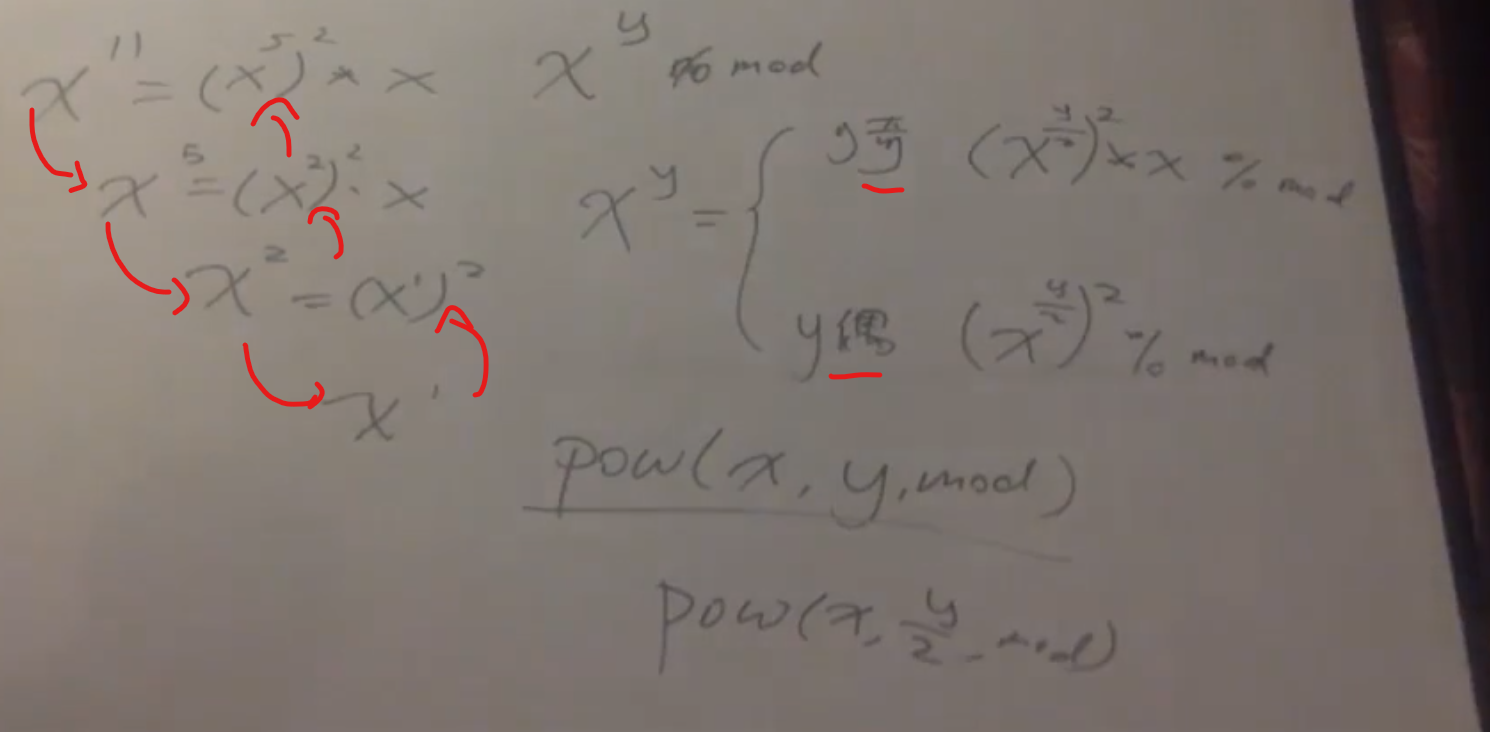 x^11 = (x^5)^2 * x
x^5 = (x^2)^2 · x
x^2 = (x^1)^2
x^1
x^y % mod
x^y = {
y奇 (x^(y/2))^2 * x % mod
y偶 (x^(y/2))^2 % mod
pow(x, y, mod)
pow(x, y/2, mod)